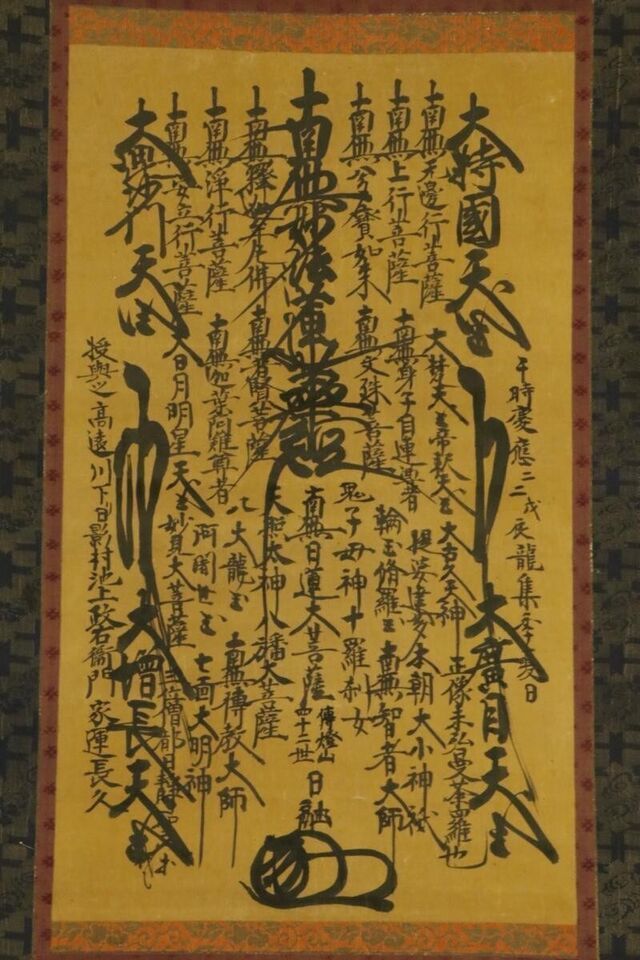 大持國天王
于時慶應二二戊辰龍集季夏日
大廣目天王
南無無邊行菩薩
南無上行菩薩
南無多寶如來
南無妙法蓮華經
南無釋迦牟尼佛
南無淨行菩薩
南無安立行菩薩
大毘沙門天王
大梵天王帝釈天王
南無身子目連尊者
南無文殊菩薩
南無普賢菩薩
南無迦葉阿難尊者
大日月明星天王
正像未弘曼荼羅也
提婆達多
本朝大小神祇
輪王脩羅王
南無智者大師
鬼子母神十羅刹女
南無日蓮大菩薩
傳燈山
四十二世
日
天照太神八幡大菩薩
八大龍王
南無傳教大師
阿闍世王
七面大明神
妙見大菩薩
大增長天王
授與之高遠川下日影村池上政右衞門家運長久